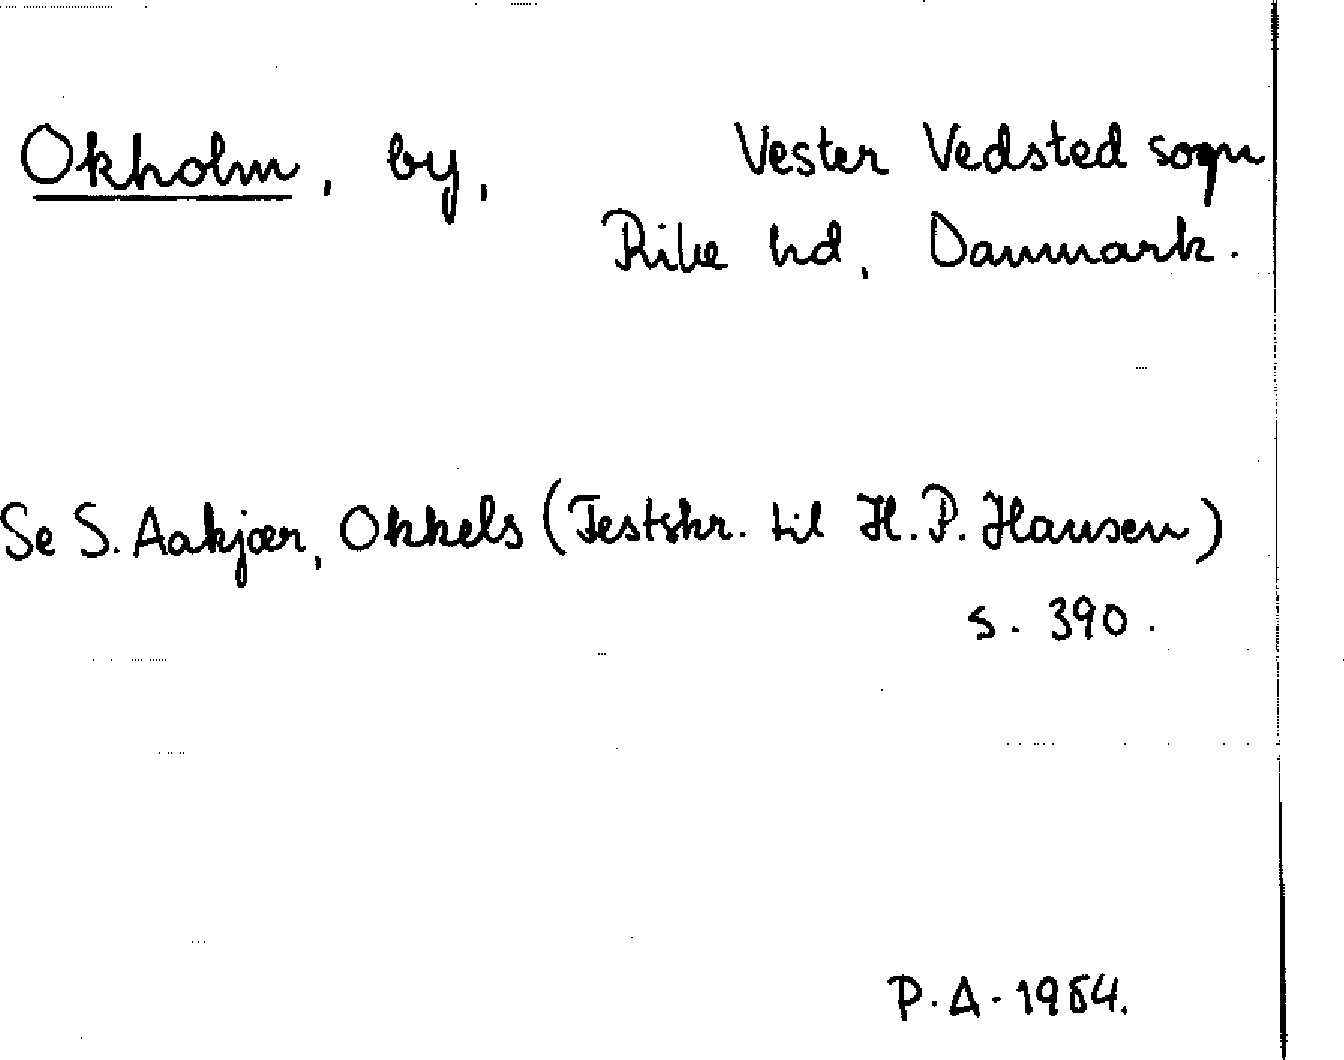 Okholm, by, Vester Vedsted sogn
Ribe hd, Danmark.
Se S. Aakjær, Okkels (Festskr. til H. P. Hansen)
s. 390.
P. A. 1954.